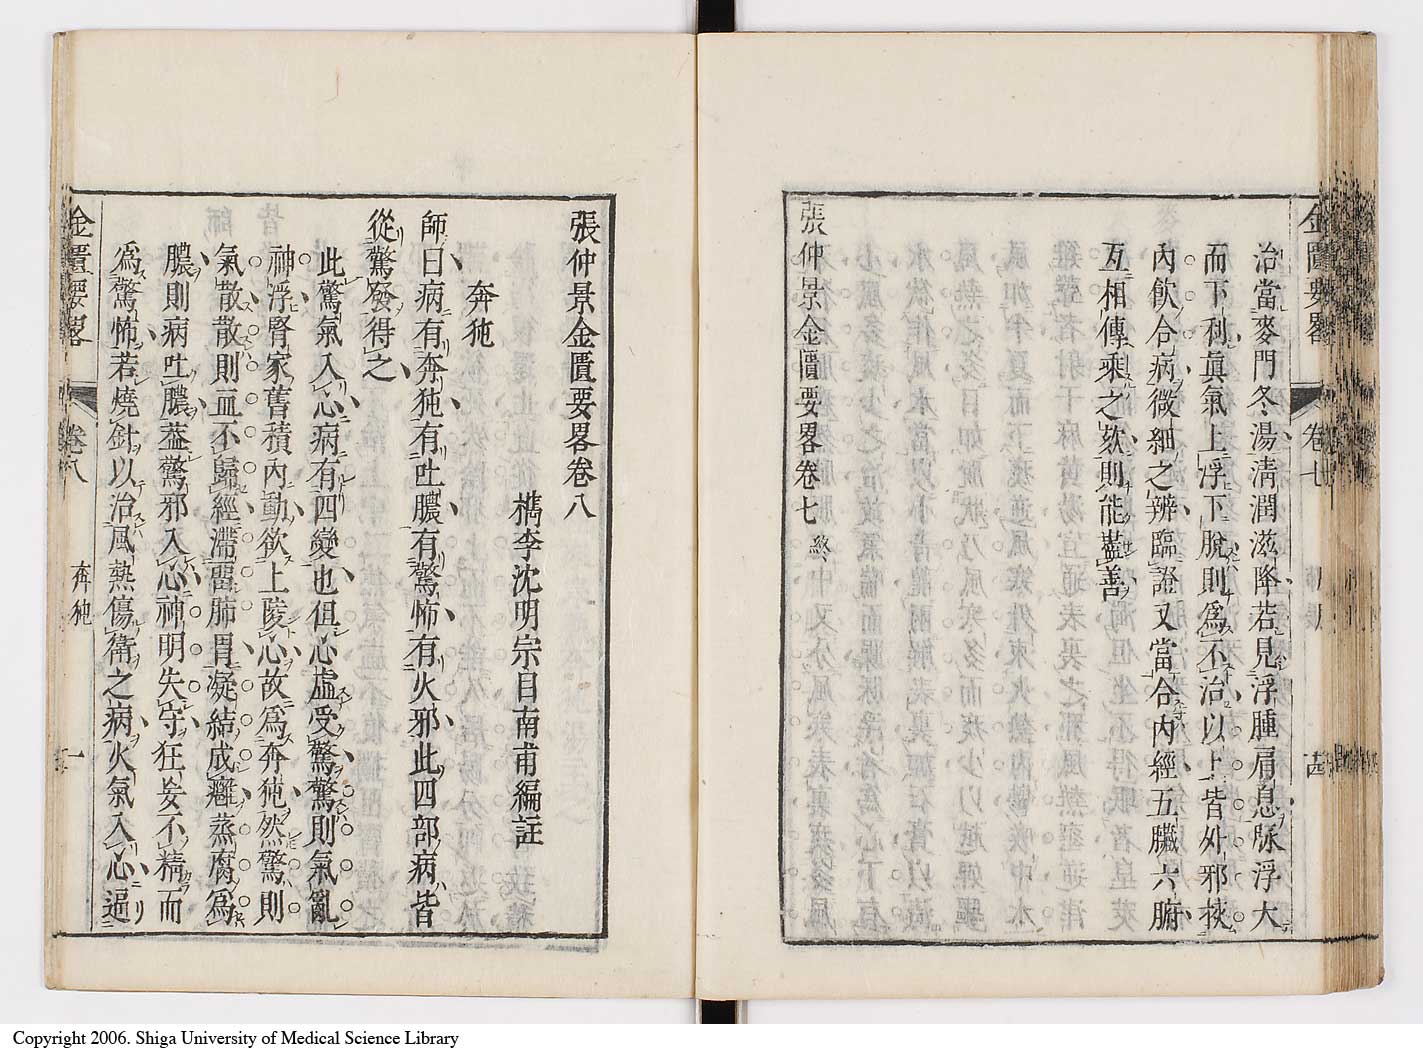 金匱要畧 卷七 十四
治當麥門冬湯清潤滋降若見浮腫肩息脉浮大
而下利眞氣上浮下脫則爲不治以上皆外邪挾
內飮合病微細之辨臨證又當合內經五臟六腑
互相傳乘之欬則能藍善
張仲景金匱要畧卷七 終
張仲景金匱要畧卷八
檇李沈明宗目南甫編註
奔㹠
師曰病有奔㹠有吐膿有驚怖有火邪此四部病皆
從驚發得之
此驚氣入心病有四變也但心虛受驚驚則氣亂
神浮腎家舊積內動欲上陵心故爲奔㹠然驚則
氣散散則血不歸經滯畱肺胃凝結成癰蒸腐爲
膿則病吐膿葢驚邪入心神明失守狂妄不精而
爲驚怖若燒針以治風熱傷衛之病火氣入心逼
金匱要畧 卷八 奔㹠 一
Copyright 2006. Shiga University of Medical Science Library